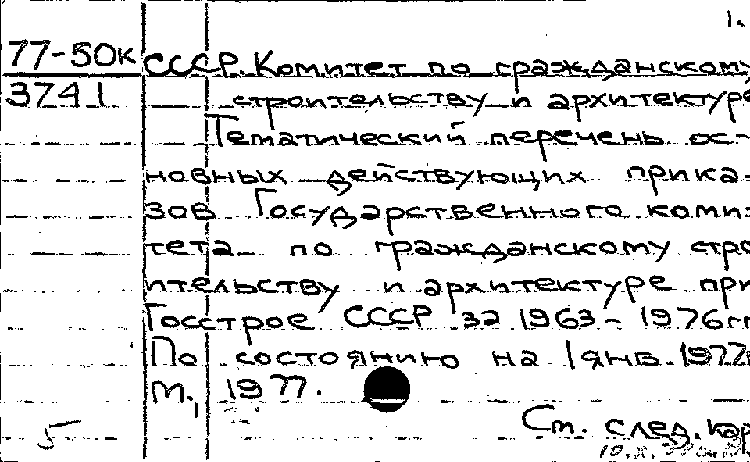 1.
77-50к СССР. Комитет по гражданскому
3741 строительству и архитектуре
Тематический перечень ос-
новных действующих прика-
зов Государственного коми-
тета по гражданскому стро
ительству и архитектуре при
Госстрое СССР за 1963-1976гг
По состоянию на 1 янв. 1977
М., 1977.
См. след. кар
5